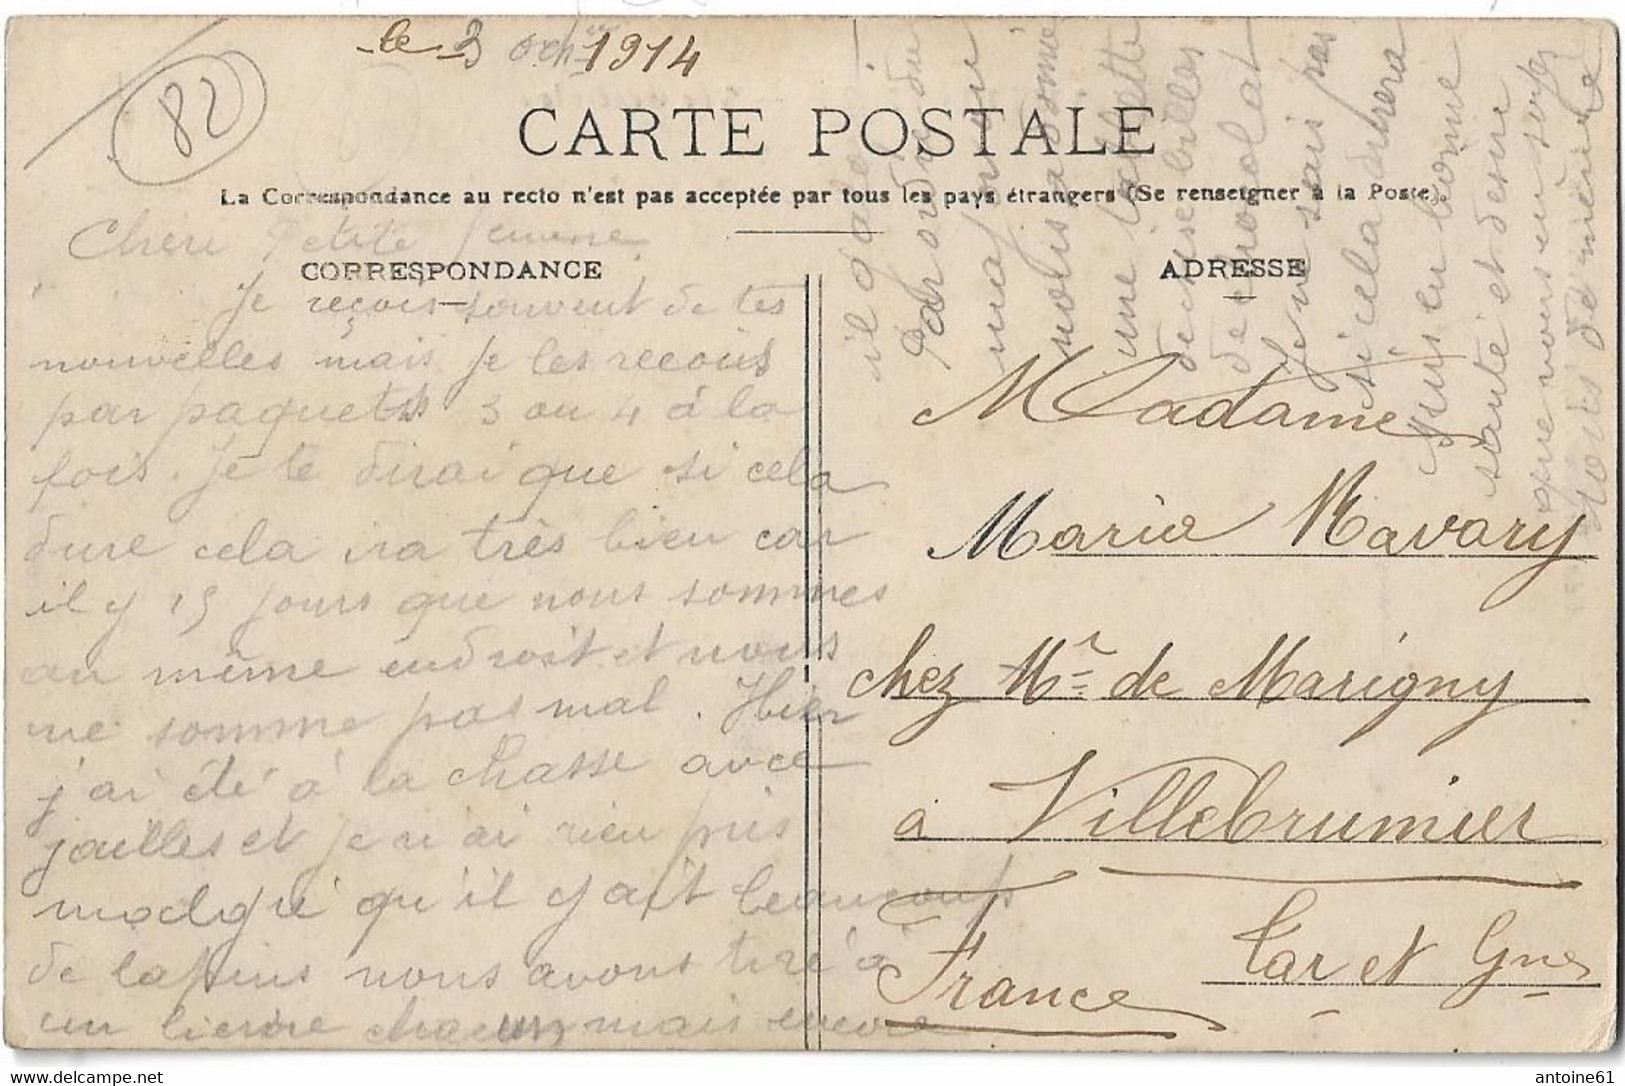 le 3 Oct 1914
82
CARTE POSTALE
La Correspondance au recto n'est pas acceptée par tous les pays étrangers (Se renseigner à la Poste).
CORRESPONDANCE
ADRESSE
Chere Petite femme
Je reçois souvent de tes
nouvelles mais je les recois
par paquets 3 ou 4 à la
fois. Je te dirai que si cela
dure cela ira très bien car
il y 15 jours que nous sommes
au même endroit et nous
ne somme pas mal. Hier
j'ai été à la chasse avec
jailles et je n'ai rien pris
qu'il y ait beaucoup
de lapins nous avons tiré à
un lievre chacun mais encore
il
Par ordre du
major on
nous a donné
une tablette
de
de chocolat
Je ne sais pas
si cela durera
Suis en bonne
santé et desire
que vous en soyez
tous de même
Madame
Maria Ravary
chez Mr de Marigny
à Villebrumier
Tar et Gne
France
antoine61